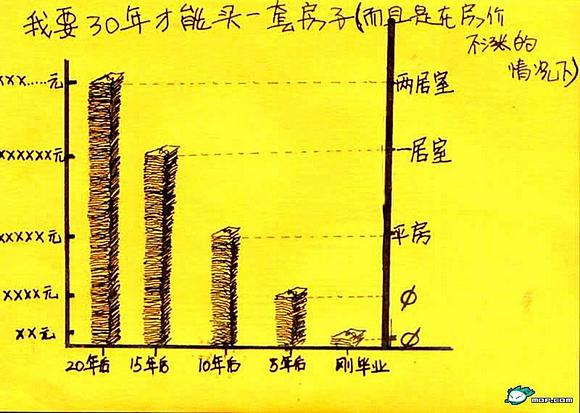 我要30年才能买一套房子(而且是在房价
不涨的
情况下)
xxx.....元
两居室
xxxxxx元
一居室
xxxxx元
平房
xxxx元
ϕ
xx元
ϕ
20年后 15年后 10年后 5年后 刚毕业
MOP.COM